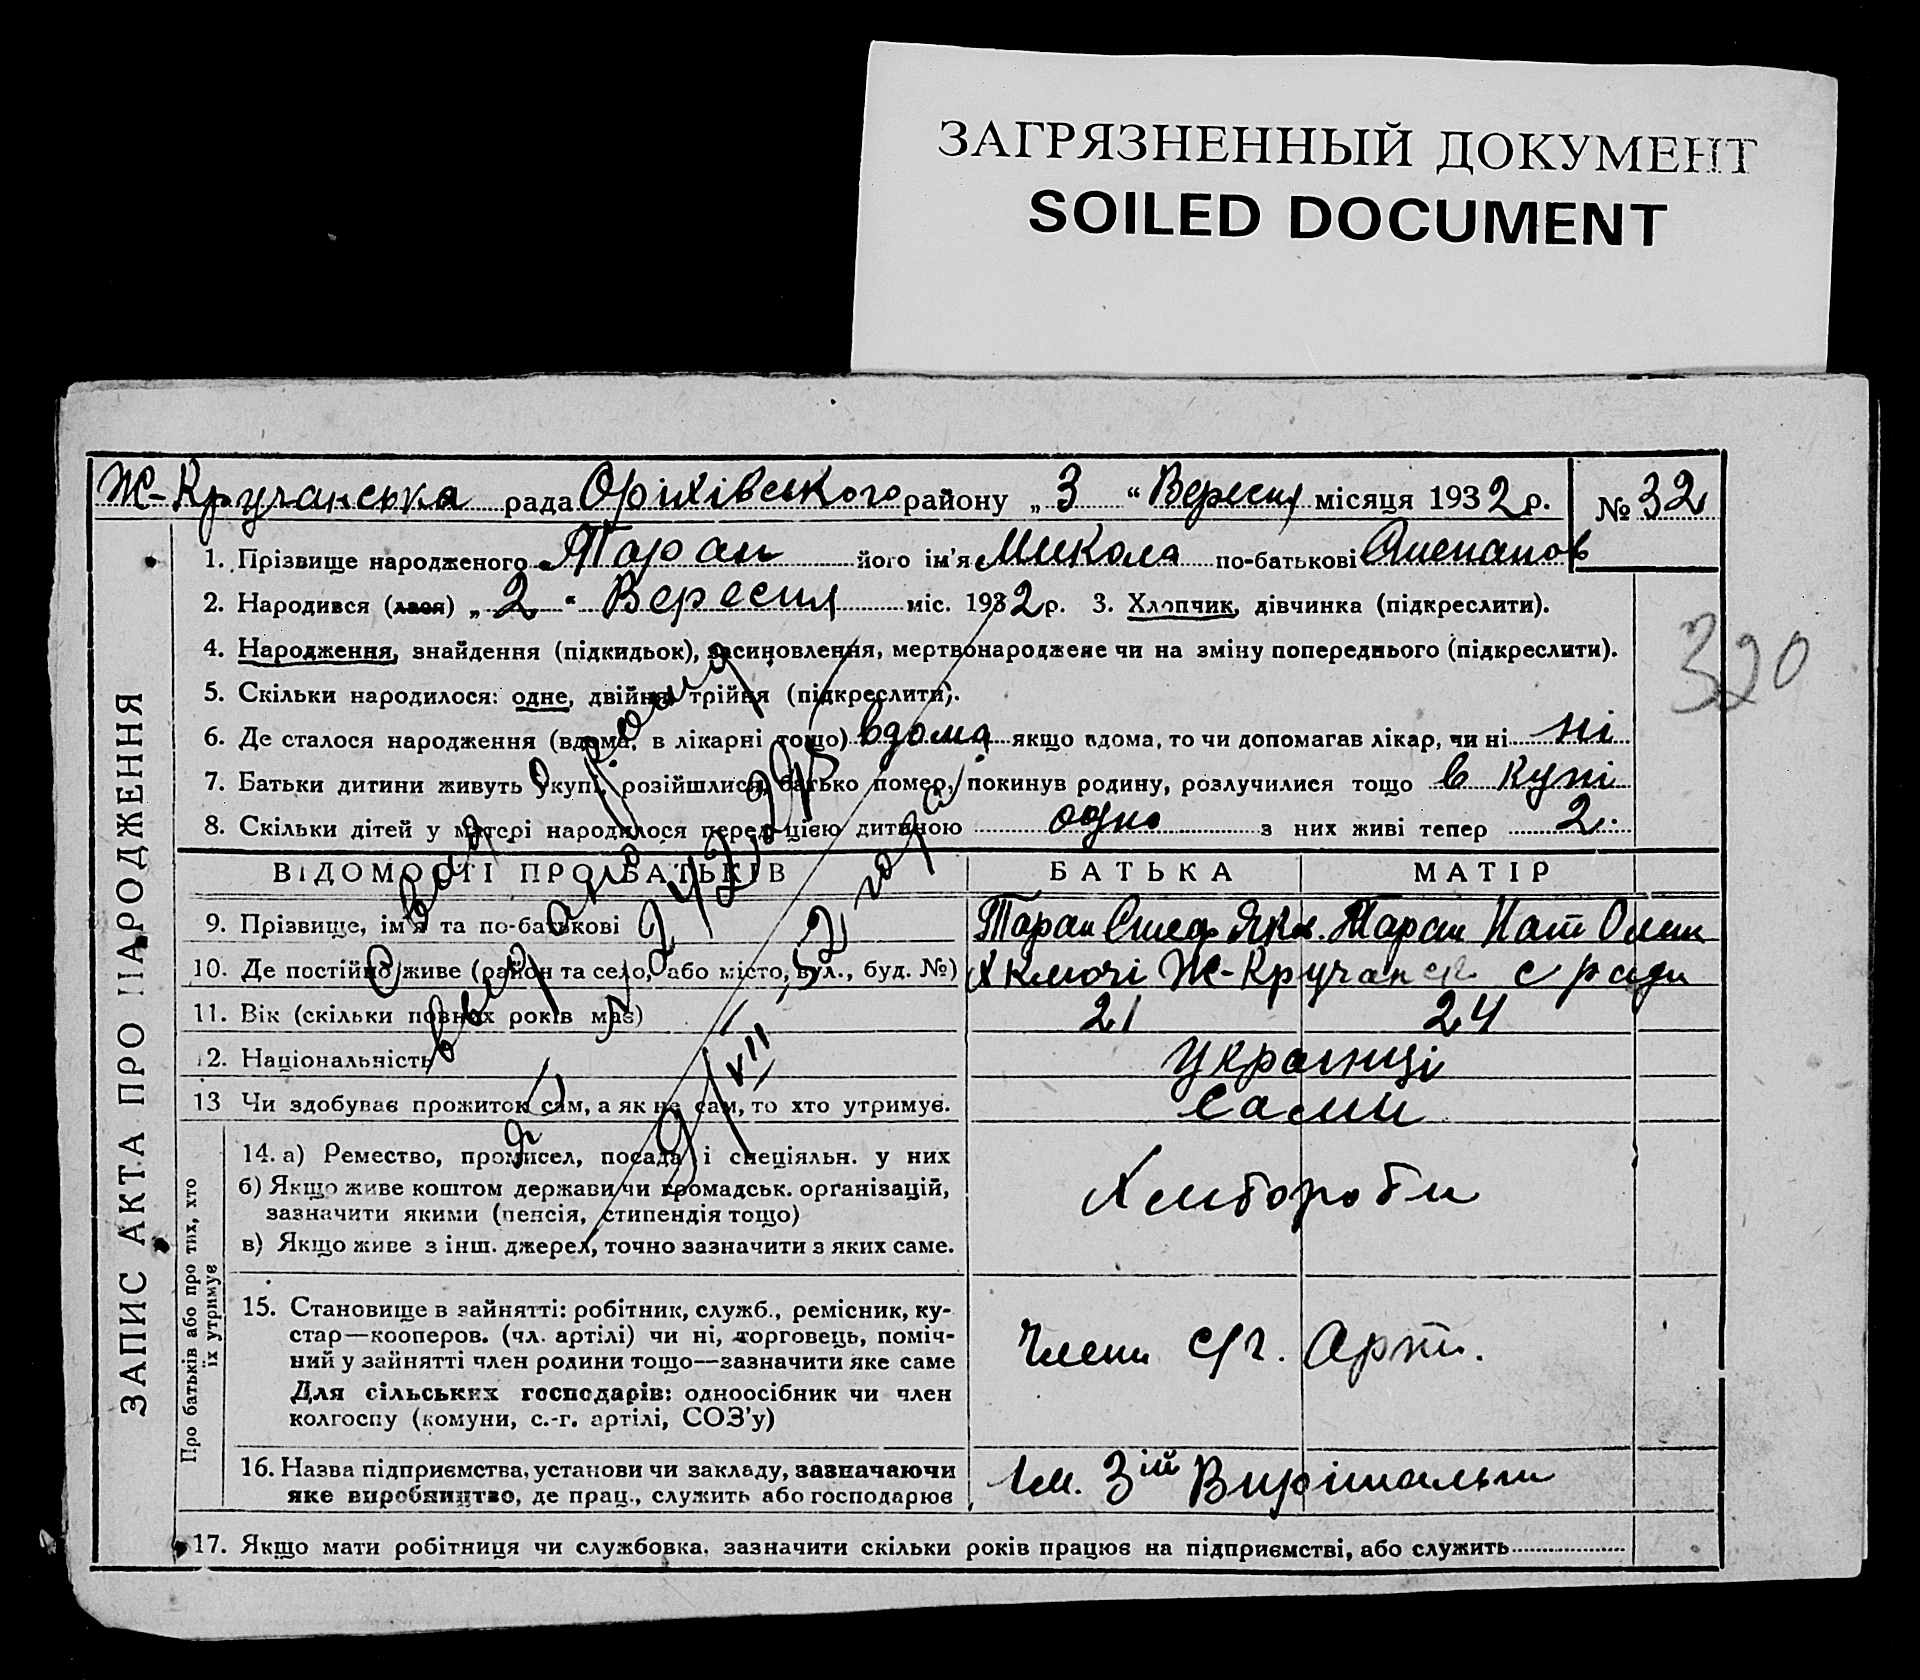 ЗАГРЯЗНЕННЫЙ ДОКУМЕНТ
SOILED DOCUMENT
Ж-Кручанська рада Оріхівського району „ 3 “ Вересня місяця 1932 р. № 32
1. Прізвище народженого Таран його ім'я Микола по-батькові Степанов
2. Народився (лася) „ 2 “ Вересня міс. 1932 р. 3. Хлопчик, дівчинка (підкреслити).
4. Народження, знайдення (підкидьок), засиновлення, мертвонароджене чи на зміну попереднього (підкреслити).
5. Скільки народилося: одне, двійня, трійня (підкреслити).
6. Де сталося народження (вдома, в лікарні тощо) вдома якщо вдома, то чи допомагав лікар, чи ні ні
7. Батьки дитини живуть укупі, розійшлися, батько помер, покинув родину, розлучилися тощо в купі
8. Скільки дітей у матері народилося перед цією дитиною одно з них живі тепер 2.
320
ВІДОМОСТІ ПРО БАТЬКІВ БАТЬКА МАТІР
9. Прізвище, ім'я та по-батькові Таран Степ Яков. Таран Нат
10. Де постійно живе (район та село, або місто, вул., буд. №) Ж-Кручанск с ради
11. Вік (скільки повних років має) 21 24
12. Національність Українці
13 Чи здобуває прожиток сам, а як не сам, то хто утримує. Сами
14. а) Ремество, промисел, посада і спеціяльн. у них
б) Якщо живе коштом держави чи громадськ. організацій,
зазначити якими (пенсія, стипендія тощо)
в) Якщо живе з інш. джерел, точно зазначити з яких саме.
Хлібороби
15. Становище в зайнятті: робітник, служб., ремісник, ку-
стар—кооперов. (чл. артілі) чи ні, торговець, поміч-
ний у зайнятті член родини тощо—зазначити яке саме
Для сільських господарів: одноосібник чи член
колгоспу (комуни, с.-г. артілі, СОЗ'у)
Члени с/г. Арт.
16. Назва підприємства, установи чи закладу, зазначаючи
яке виробництво, де прац., служить або господарює
Ім. 3ій Вирішальн
17. Якщо мати робітниця чи службовка, зазначити скільки років працює на підприємстві, або служить
ЗАПИС АКТА ПРО НАРОДЖЕННЯ
Про батьків або про тих, хто
їх утримує
9/VII 52 года